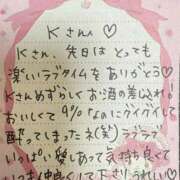 Kさん♡
Kさん、先日はとっても
楽しいラブタイムをありがとう♡
Kさんめずらしくお酒の差し入れ!
おいしくて9%なのにグイグイして
酔ってましたネ(笑)ラブラブ
いっぱい愛しあって気持ち良くて
いつも仲良くして下さりうれしい♡